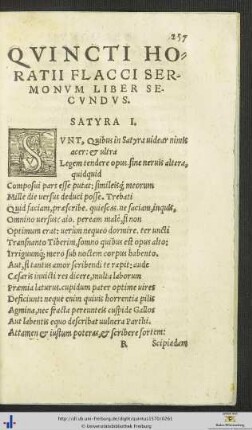 257
QVINCTI HO-
RATII FLACCI SER-
MONVM LIBER SE-
CVNDVS.
SATYRA I.
SVNT, Quibus in Satyra videar nimis
acer: & vltra
Legem tendere opus. sine neruis altera,
quidquid
Composui pars esse putat: similesq; meorum
Mille die versus deduci posse. Trebati
Quid faciam, præscribe. quiescas. ne faciam, inquis,
Omnino versus: aio. peream malè, si non
Optimum erat: verùm nequeo dormire. ter vncti
Transnanto Tiberim, somno quibus est opus alto:
Irriguumq; mero sub noctem corpus habento.
Aut, si tantus amor scribendi te rapit: aude
Cæsaris inuicti res dicere, multa laborum
Præmia laturus. cupidum pater optime vires
Deficiunt: neque enim quiuis horrentia pilis
Agmina, nec fracta pereunteis cuspide Gallos
Aut labentis equo describat vulnera Parthi.
Attamen & iustum poteras, & scribere fortem:
R
Scipiadam
http://dl.ub.uni-freiburg.de/diglit/
© Universitätsbibliothek Freiburg